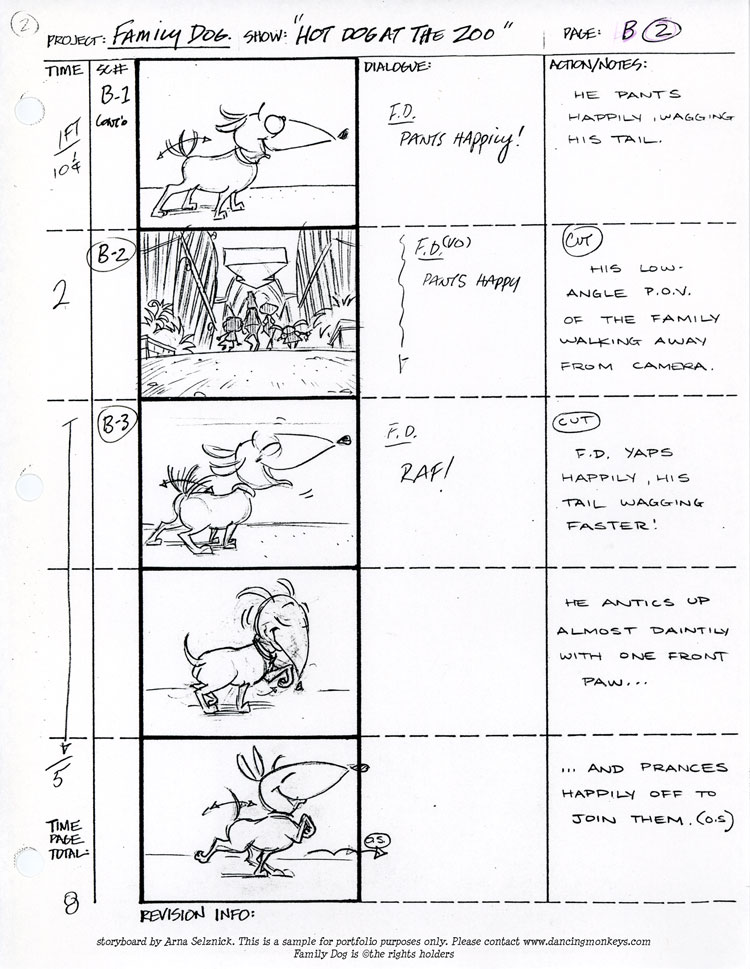 2
PROJECT: FAMILY DOG. SHOW: "HOT DOG AT THE ZOO" PAGE: B 2
TIME SC# DIALOGUE: ACTION/NOTES:
B-1
CONT'D
1FT
10
F.D.
PANTS HAPPILY!
HE PANTS
HAPPILY, WAGGING
HIS TAIL.
B-2
2
F.D. (VO)
PANTS HAPPY
CUT
HIS LOW-
ANGLE P.O.V.
OF THE FAMILY
WALKING AWAY
FROM CAMERA.
B-3
F.D.
RAF!
CUT
F.D. YAPS
HAPPILY, HIS
TAIL WAGGING
FASTER!
HE ANTICS UP
ALMOST DAINTILY
WITH ONE FRONT
PAW...
5
OS
... AND PRANCES
HAPPILY OFF TO
JOIN THEM. (O.S)
TIME
PAGE
TOTAL:
8
REVISION INFO:
storyboard by Arna Selznick. This is a sample for portfolio purposes only. Please contact www.dancingmonkeys.com
Family Dog is ©the rights holders